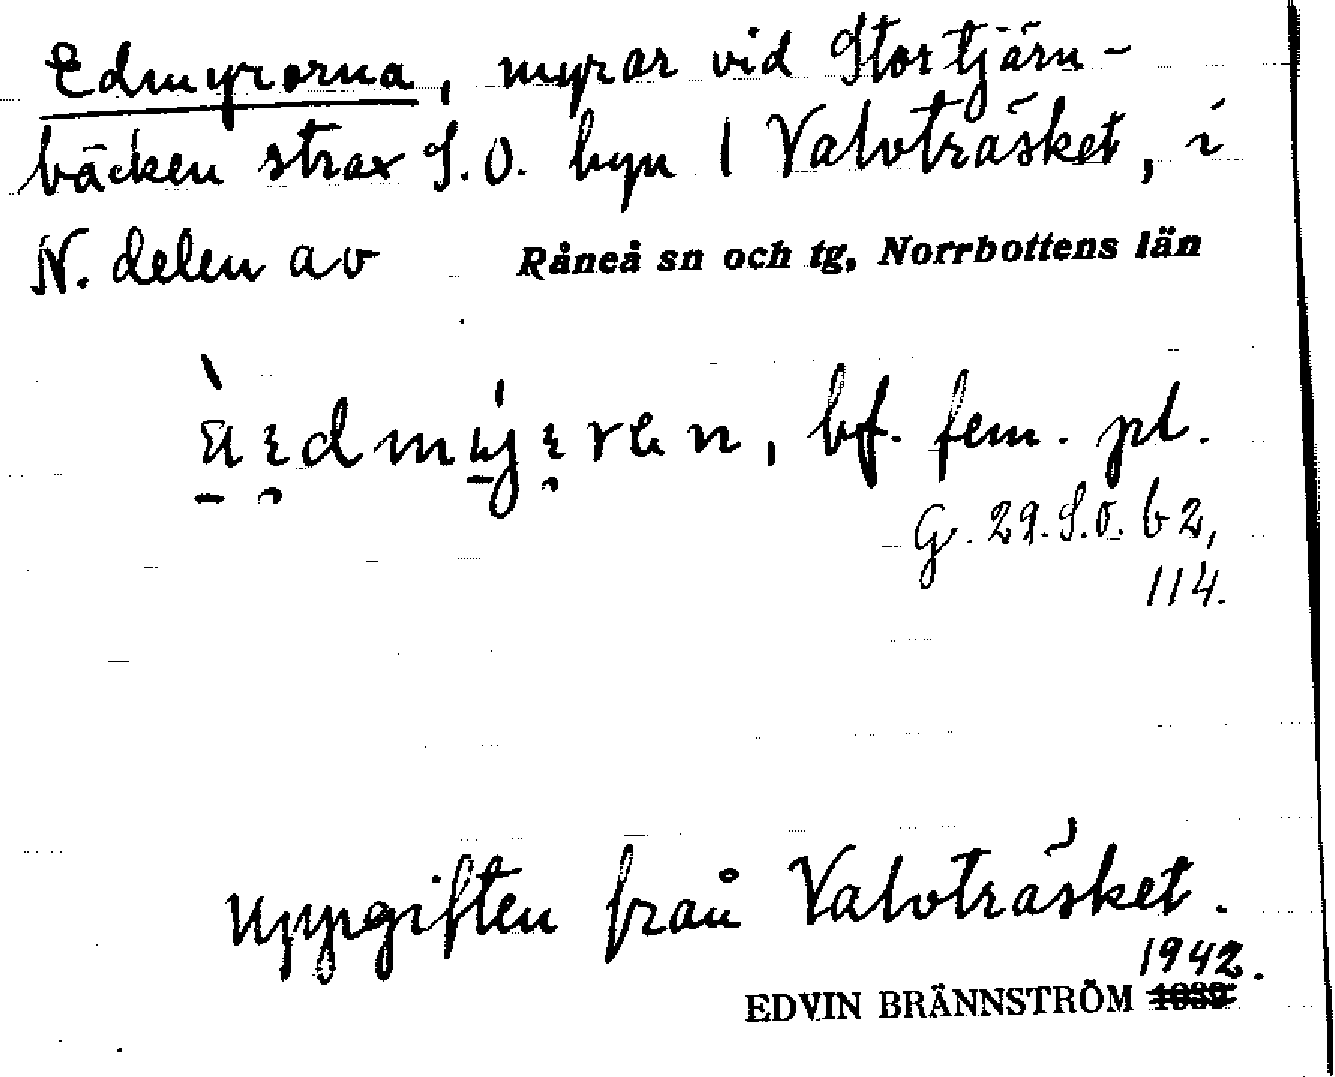 Edmyrorna, myrar vid Stortjärn-
bäcken strax S.O. byn | Valvträsket, i
N. delen av Råneå sn och tg, Norrbottens län
bf. fem. pl.
G. 29. S.O. b 2,
114.
Uppgiften från Valvträsket.
1942.
EDVIN BRÄNNSTRÖM 1939